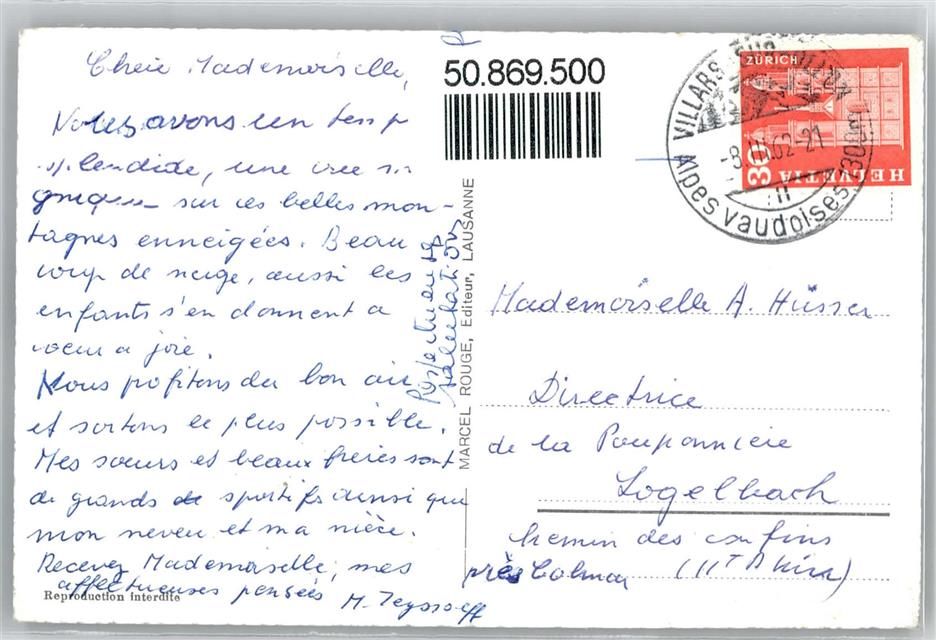 Chère Mademoiselle,
Nous avons un temps
splendide, une vue
sur ces belles mon-
tagnes enneigées. Beau
coup de neige, aussi les
enfants s'en donnent a
coeur a joie.
Nous profitons du bon air
et sortons le plus possible.
Mes sœurs et beaux frères sont
de grands de sportifs ainsi que
mon neveu et ma nièce.
Recevez Mademoiselle, mes
affectueuses pensées
Respectueuses
salutations
Reproduction interdite
50.869.500
MARCEL ROUGE, Editeur, LAUSANNE
VILLARS SUR OLLON
-8.II.62-21
Alpes vaudoises 1300m
ZÜRICH
30
HELVETIA
Mademoiselle A. Hüsser
Directrice
de la Pouponnière
Logelbach
chemin des confins
près Colmar (Ht Rhin)